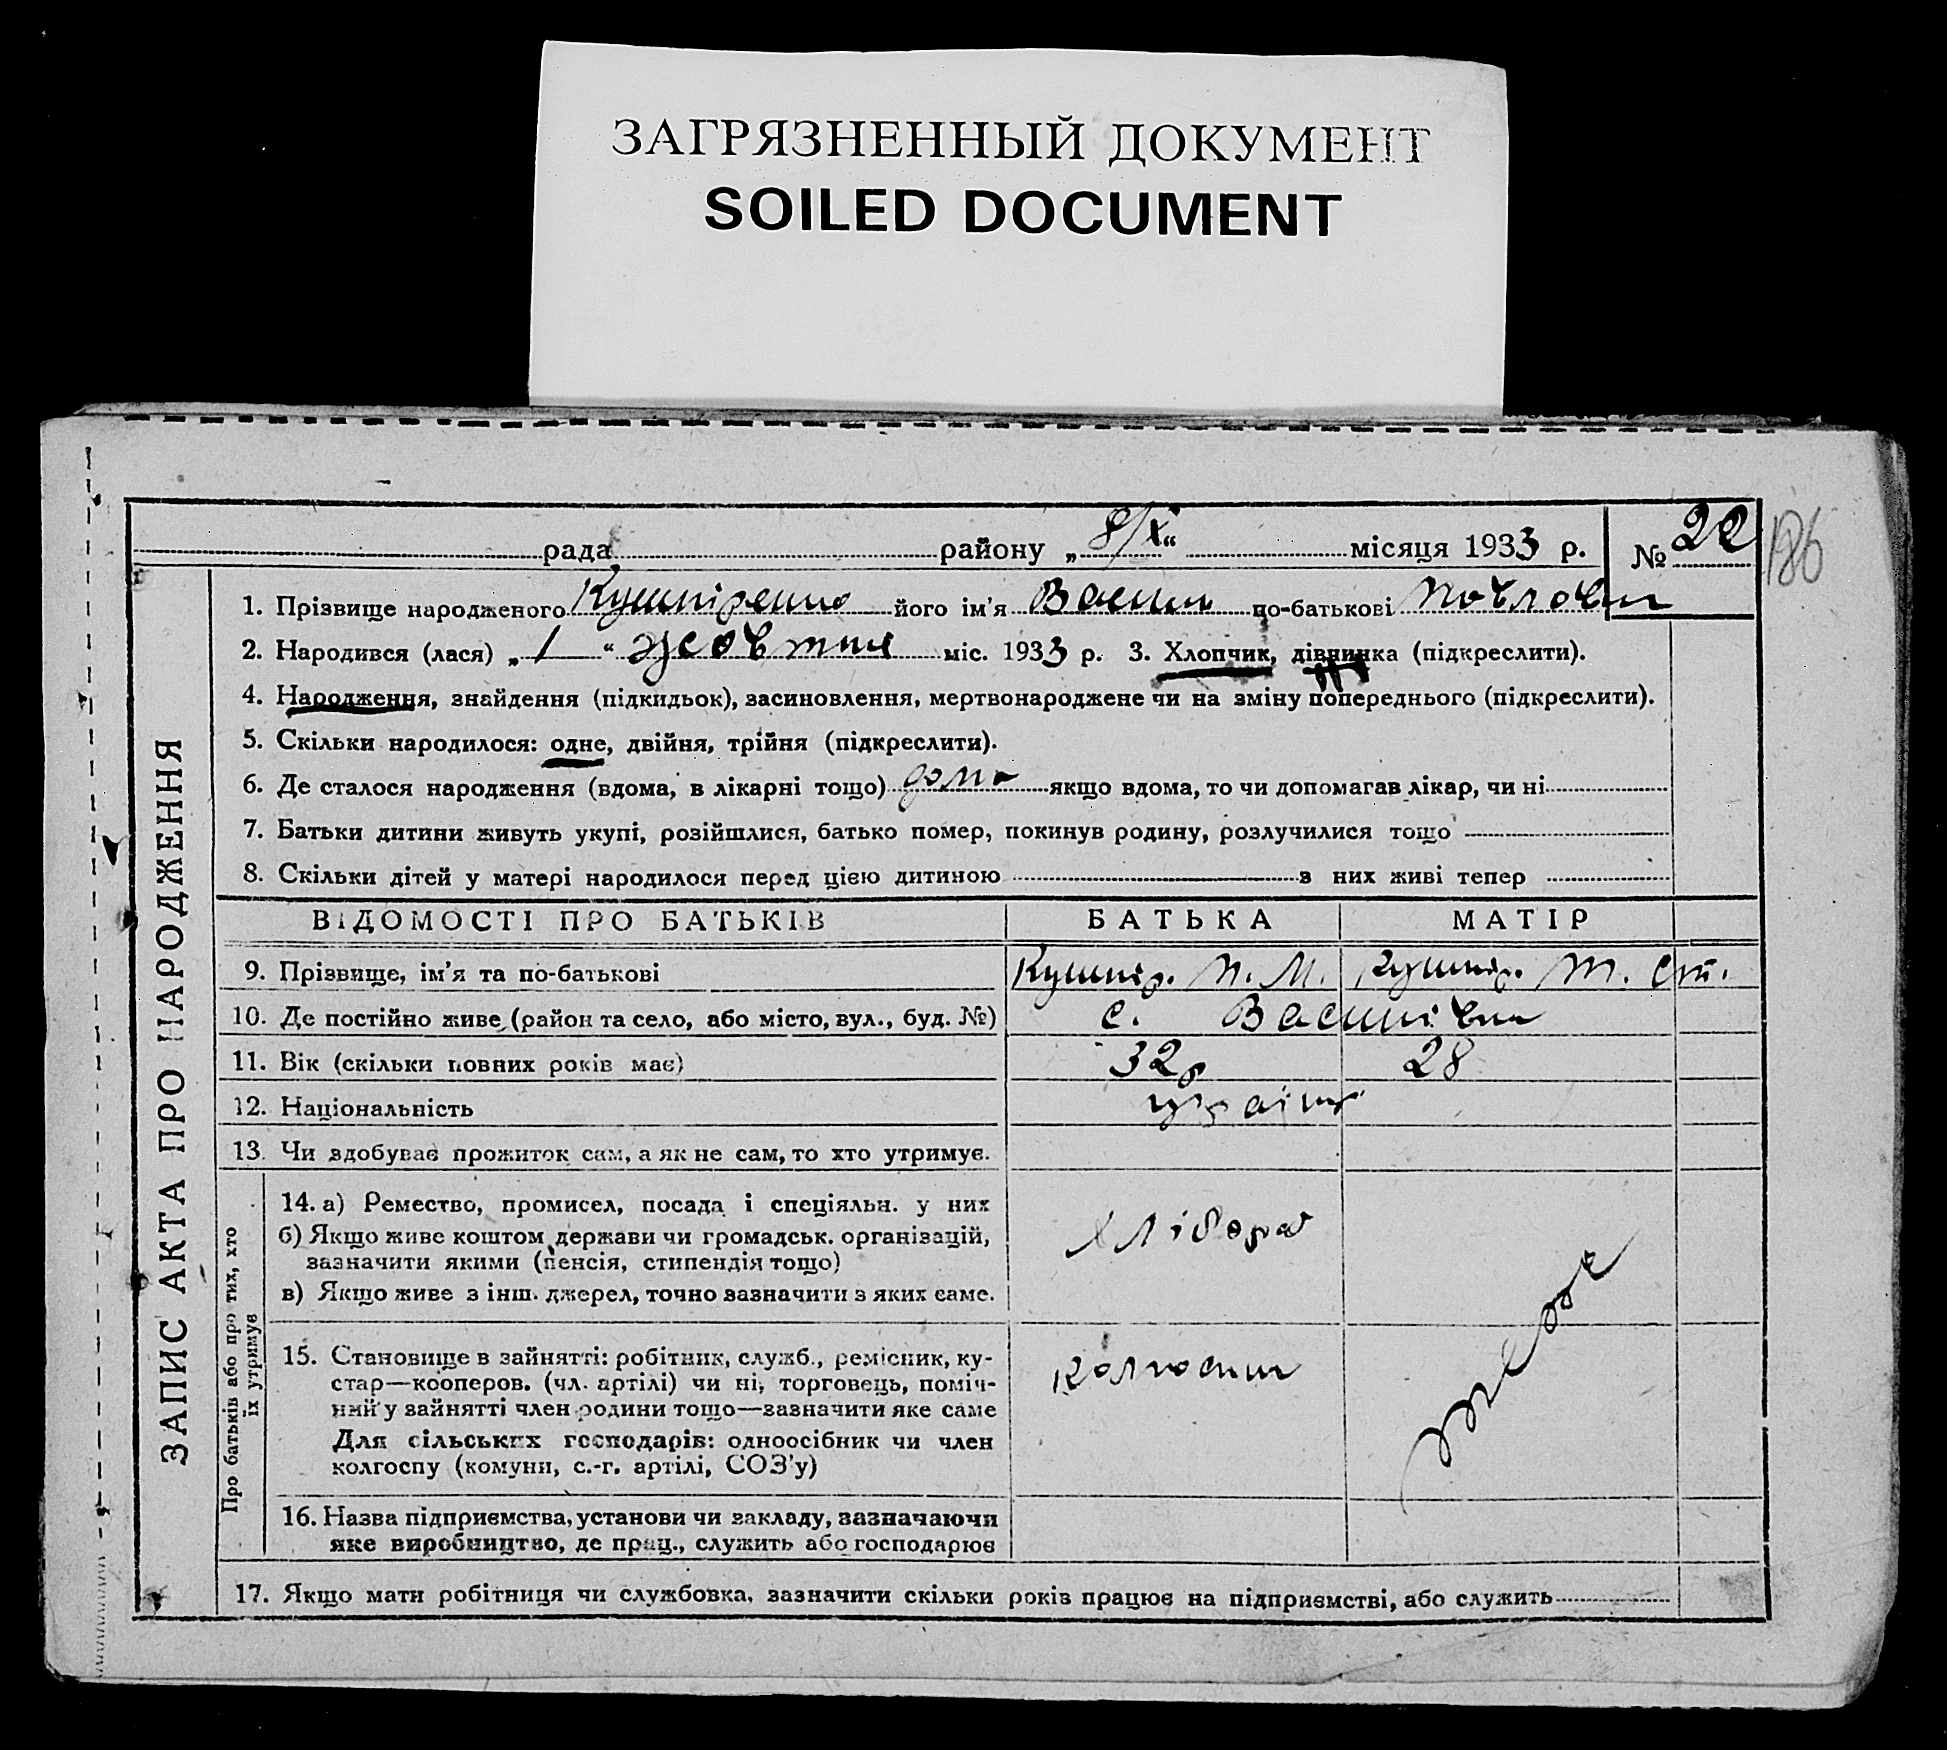 ЗАГРЯЗНЕННЫЙ ДОКУМЕНТ
SOILED DOCUMENT
рада району „8/X“ місяця 1933 р. № 22
186
ЗАПИС АКТА ПРО НАРОДЖЕННЯ
1. Прізвище народженого його ім'я Васил по-батькові Павлович
2. Народився (лася) „1“ жовтня міс. 1933 р. 3. Хлопчик, дівчинка (підкреслити).
4. Народження, знайдення (підкидьок), засиновлення, мертвонароджене чи на зміну попереднього (підкреслити).
5. Скільки народилося: одне, двійня, трійня (підкреслити).
6. Де сталося народження (вдома, в лікарні тощо) дома якщо вдома, то чи допомагав лікар, чи ні
7. Батьки дитини живуть укупі, розійшлися, батько помер, покинув родину, розлучилися тощо
8. Скільки дітей у матері народилося перед цією дитиною з них живі тепер
ВІДОМОСТІ ПРО БАТЬКІВ БАТЬКА МАТІР
9. Прізвище, ім'я та по-батькові Кушнір. П. М. Кушнір. Т. Ст.
10. Де постійно живе (район та село, або місто, вул., буд. №) с. Василівка
11. Вік (скільки повних років має) 32 р 28
12. Національність україн
13. Чи здобуває прожиток сам, а як не сам, то хто утримує.
Про батьків або про тих, хто
їх утримує
14. а) Ремество, промисел, посада і спеціяльн. у них
б) Якщо живе коштом держави чи громадськ. організацій,
зазначити якими (пенсія, стипендія тощо)
в) Якщо живе з інш. джерел, точно зазначити з яких саме.
хлібороб
15. Становище в зайнятті: робітник, служб., ремісник, ку-
стар—кооперов. (чл. артілі) чи ні, торговець, поміч-
ний у зайнятті член родини тощо—зазначити яке саме
Для сільських господарів: одноосібник чи член
колгоспу (комуни, с.-г. артілі, СОЗ'у)
колгоспник
16. Назва підприємства, установи чи закладу, зазначаючи
яке виробництво, де прац., служить або господарює
17. Якщо мати робітниця чи службовка, зазначити скільки років працює на підприємстві, або служить